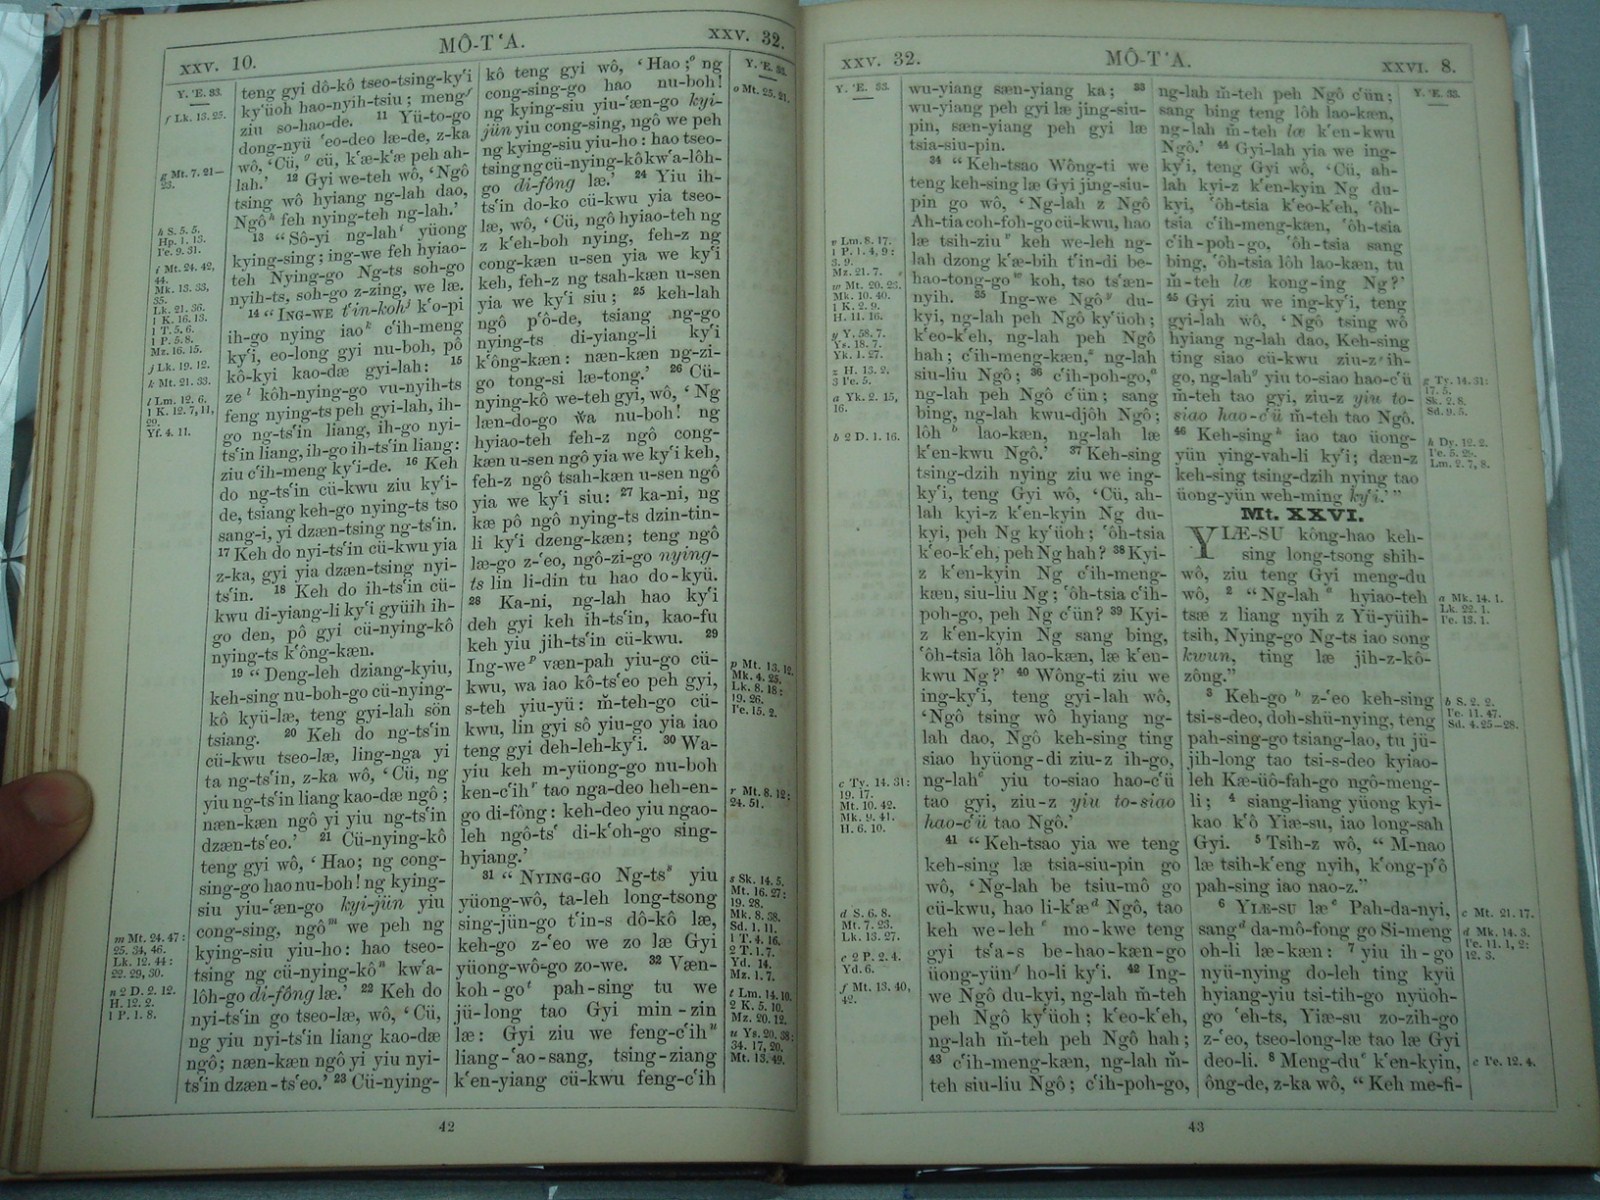 XXV. 10.
MÔ-TʻA.
XXV. 32.
Y. ʻE. 33.
f Lk. 13. 25.
g Mt. 7. 21—
23.
h S. 5. 5.
Hp. 1. 13.
Pe. 9. 31.
i Mt. 24. 42,
44.
Mk. 13. 33,
35.
Lk. 21. 36.
1 K. 16. 13.
1 T. 5. 6.
1 P. 5. 8.
Mz. 16. 15.
j Lk. 19. 12.
k Mt. 21. 33.
l Lm. 12. 6.
1 K. 12. 7, 11,
29.
Yf. 4. 11.
m Mt. 24. 47:
25. 34, 46.
Lk. 12. 44:
22. 29, 30.
n 2 D. 2. 12.
H. 12. 2.
1 P. 1. 8.
teng gyi dô-kô tseo-tsing-kyʻi
kyʻüoh hao-nyih-tsiu; mengᶠ
ziu so-hao-de. 11 Yü-to-go
dong-nyü ʻeo-deo læ-de, z-ka
wô, ‘Cü,ᵍ cü, kʻæ-kʻæ peh ah-
lah.’ 12 Gyi we-teh wô, ‘Ngô
tsing wô hyiang ng-lah dao,
Ngôʰ feh nying-teh ng-lah.’
13 “Sô-yi ng-lahⁱ yüong
kying-sing; ing-we feh hyiao-
teh Nying-go Ng-ts soh-go
nyih-ts, soh-go z-zing, we læ.
14 “ING-WE tʻin-kohʲ kʻo-pi
ih-go nying iaoᵏ cʻih-meng
kyʻi, eo-long gyi nu-boh, pô
kô-kyi kao-dæ gyi-lah: 15
zeˡ kôh-nying-go vu-nyih-ts
feng nying-ts peh gyi-lah, ih-
go ng-tsʻin liang, ih-go nyi-
tsʻin liang, ih-go ih-tsʻin liang:
ziu cʻih-meng kyʻi-de. 16 Keh
do ng-tsʻin cü-kwu ziu kyʻi-
de, tsiang keh-go nying-ts tso
sang-i, yi dzæn-tsing ng-tsʻin.
17 Keh do nyi-tsʻin cü-kwu yia
z-ka, gyi yia dzæn-tsing nyi-
tsʻin. 18 Keh do ih-tsʻin cü-
kwu di-yiang-li kyʻi gyüih ih-
go den, pô gyi cü-nying-kô
nying-ts kʻông-kæn.
19 “Deng-leh dziang-kyiu,
keh-sing nu-boh-go cü-nying-
kô kyü-læ, teng gyi-lah sön
tsiang. 20 Keh do ng-tsʻin
cü-kwu tseo-læ, ling-nga yi
ta ng-tsʻin, z-ka wô, ‘Cü, ng
yiu ng-tsʻin liang kao-dæ ngô;
næn-kæn ngô yi yiu ng-tsʻin
dzæn-tsʻeo.’ 21 Cü-nying-kô
teng gyi wô, ‘Hao; ng cong-
sing-go hao nu-boh! ng kying-
siu yiu-ʻæn-go kyi-jün yiu
cong-sing, ngôᵐ we peh ng
kying-siu yiu-ho: hao tseo-
tsing ng cü-nying-kôⁿ kwʻa-
lôh-go di-fông læ.’ 22 Keh do
nyi-tsʻin go tseo-læ, wô, ‘Cü,
ng yiu nyi-tsʻin liang kao-dæ
ngô; næn-kæn ngô yi yiu nyi-
tsʻin dzæn-tsʻeo.’ 23 Cü-nying-
kô teng gyi wô, ‘Hao;ᵒ ng
cong-sing-go hao nu-boh!
ng kying-siu yiu-ʻæn-go kyi-
jün yiu cong-sing, ngô we peh
ng kying-siu yiu-ho: hao tseo-
tsing ng cü-nying-kô kwʻa-lôh-
go di-fông læ.’ 24 Yiu ih-
tsʻin do-ko cü-kwu yia tseo-
læ, wô, ‘Cü, ngô hyiao-teh ng
z kʻeh-boh nying, feh-z ng
cong-kæn u-sen yia we kyʻi
keh, feh-z ng tsah-kæn u-sen
yia we kyʻi siu; 25 keh-lah
ngô pʻô-de, tsiang ng-go
nying-ts di-yiang-li kyʻi
kʻông-kæn: næn-kæn ng-zi-
go tong-si læ-tong.’ 26 Cü-
nying-kô we-teh gyi, wô, ‘Ng
læn-do-go wa nu-boh! ng
hyiao-teh feh-z ngô cong-
kæn u-sen ngô yia we kyʻi keh,
feh-z ngô tsah-kæn u-sen ngô
yia we kyʻi siu: 27 ka-ni, ng
kæ pô ngô nying-ts dzin-tin-
li kyʻi dzeng-kæn; teng ngô
læ-go z-ʻeo, ngô-zi-go nying-
ts lin li-din tu hao do-kyü.
28 Ka-ni, ng-lah hao kyʻi
deh gyi keh ih-tsʻin, kao-fu
keh yiu jih-tsʻin cü-kwu. 29
Ing-weᵖ væn-pah yiu-go cü-
kwu, wa iao kô-tsʻeo peh gyi,
s-teh yiu-yü: m̆-teh-go cü-
kwu, lin gyi sô yiu-go yia iao
teng gyi deh-leh-kyʻi. 30 Wa-
yiu keh m-yüong-go nu-boh
ken-cʻihʳ tao nga-deo heh-en-
go di-fông: keh-deo yiu ngao-
leh ngô-tsʻ di-kʻoh-go sing-
hyiang.’
31 “NYING-GO Ng-tsˢ yiu
yüong-wô, ta-leh long-tsong
sing-jün-go tʻin-s dô-kô læ,
keh-go z-ʻeo we zo læ Gyi
yüong-wô-go zo-we. 32 Væn-
koh-goᵗ pah-sing tu we
jü-long tao Gyi min-zin
læ: Gyi ziu we feng-cʻihᵘ
liang-ʻao-sang, tsing-ziang
kʻen-yiang cü-kwu feng-cʻih
Y. ʻE. 33.
o Mt. 25. 21.
p Mt. 13. 12.
Mk. 4. 25.
Lk. 8. 18:
19. 26.
Pe. 15. 2.
r Mt. 8. 12:
24. 51.
s Sk. 14. 5.
Mt. 16. 27:
19. 28.
Mk. 8. 38.
Sd. 1. 11.
1 T. 4. 16.
2 T. 1. 7.
Yd. 14.
Mz. 1. 7.
t Lm. 14. 10.
2 K. 5. 10.
Mz. 20. 12.
u Ys. 20. 38:
34. 17, 20.
Mt. 13. 49.
42
XXV. 32.
MÔ-TʻA.
XXVI. 8.
Y. ʻE. 33.
v Lm. 8. 17.
1 P. 1. 4, 9:
3. 9.
Mz. 21. 7.
w Mt. 20. 23.
Mk. 10. 40.
1 K. 2. 9.
H. 11. 16.
y Y. 58. 7.
Ys. 18. 7.
Yk. 1. 27.
z H. 13. 2.
3 Pe. 5.
a Yk. 2. 15,
16.
b 2 D. 1. 16.
c Ty. 14. 31:
19. 17.
Mt. 10. 42.
Mk. 9. 41.
H. 6. 10.
d S. 6. 8.
Mt. 7. 23.
Lk. 13. 27.
e 2 P. 2. 4.
Yd. 6.
f Mt. 13. 40,
42.
wu-yiang sæn-yiang ka; 33
wu-yiang peh gyi læ jing-siu-
pin, sæn-yiang peh gyi læ
tsia-siu-pin.
34 “Keh-tsao Wông-ti we
teng keh-sing læ Gyi jing-siu-
pin go wô, ‘Ng-lah z Ngô
Ah-tia coh-foh-go cü-kwu, hao
læ tsih-ziuᵛ keh we-leh ng-
lah dzong kʻæ-bih tʻin-di be-
hao-tong-goʷ koh, tso tsʻæn-
nyih. 35 Ing-we Ngôʸ du-
kyi, ng-lah peh Ngô kyʻüoh;
kʻeo-kʻeh, ng-lah peh Ngô
hah; cʻih-meng-kæn,ᶻ ng-lah
siu-liu Ngô; 36 cʻih-poh-go,ᵃ
ng-lah peh Ngô cʻün; sang
bing, ng-lah kwu-djôh Ngô;
lôhᵇ lao-kæn, ng-lah læ
kʻen-kwu Ngô.’ 37 Keh-sing
tsing-dzih nying ziu we ing-
kyʻi, teng Gyi wô, ‘Cü, ah-
lah kyi-z kʻen-kyin Ng du-
kyi, peh Ng kyʻüoh; ʻôh-tsia
kʻeo-kʻeh, peh Ng hah? 38 Kyi-
z kʻen-kyin Ng cʻih-meng-
kæn, siu-liu Ng; ʻôh-tsia cʻih-
poh-go, peh Ng cʻün? 39 Kyi-
z kʻen-kyin Ng sang bing,
ʻôh-tsia lôh lao-kæn, læ kʻen-
kwu Ng?’ 40 Wông-ti ziu we
ing-kyʻi, teng gyi-lah wô,
‘Ngô tsing wô hyiang ng-
lah dao, Ngô keh-sing ting
siao hyüong-di ziu-z ih-go,
ng-lahᶜ yiu to-siao hao-cʻü
tao gyi, ziu-z yiu to-siao
hao-cʻü tao Ngô.’
41 “Keh-tsao yia we teng
keh-sing læ tsia-siu-pin go
wô, ‘Ng-lah be tsiu-mô go
cü-kwu, hao li-kʻæᵈ Ngô, tao
keh we-lehᵉ mo-kwe teng
gyi tsʻa-s be-hao-kæn-go
üong-yünᶠ ho-li kyʻi. 42 Ing-
we Ngô du-kyi, ng-lah m̆-teh
peh Ngô kyʻüoh; kʻeo-kʻeh,
ng-lah m̆-teh peh Ngô hah;
43 cʻih-meng-kæn, ng-lah m̆-
teh siu-liu Ngô; cʻih-poh-go,
ng-lah m̆-teh peh Ngô cʻün;
sang bing teng lôh lao-kæn,
ng-lah m̆-teh læ kʻen-kwu
Ngô.’ 44 Gyi-lah yia we ing-
kyʻi, teng Gyi wô, ‘Cü, ah-
lah kyi-z kʻen-kyin Ng du-
kyi, ʻôh-tsia kʻeo-kʻeh, ʻôh-
tsia cʻih-meng-kæn, ʻôh-tsia
cʻih-poh-go, ʻôh-tsia sang
bing, ʻôh-tsia lôh lao-kæn, tu
m̆-teh læ kong-ing Ng?’
45 Gyi ziu we ing-kyʻi, teng
gyi-lah wô, ‘Ngô tsing wô
hyiang ng-lah dao, Keh-sing
ting siao cü-kwu ziu-z ih-
go, ng-lahᵍ yiu to-siao hao-cʻü
m̆-teh tao gyi, ziu-z yiu to-
siao hao-cʻü m̆-teh tao Ngô.
46 Keh-singʰ iao tao üong-
yün ying-vah-li kyʻi; dæn-z
keh-sing tsing-dzih nying tao
üong-yün weh-ming kyʻi.’”
Mt. XXVI.
YIÆ-SU kông-hao keh-
sing long-tsong shih-
wô, ziu teng Gyi meng-du
wô, 2 “Ng-lahᵃ hyiao-teh
tsæ z liang nyih z Yü-yüih-
tsih, Nying-go Ng-ts iao song
kwun, ting læ jih-z-kô-
zông.”
3 Keh-goᵇ z-ʻeo keh-sing
tsi-s-deo, doh-shü-nying, teng
pah-sing-go tsiang-lao, tu jü-
jih-long tao tsi-s-deo kyiao-
leh Kæ-üô-fah-go ngô-meng-
li; 4 siang-liang yüong kyi-
kao kʻô Yiæ-su, iao long-sah
Gyi. 5 Tsih-z wô, “M-nao
læ tsih-kʻeng nyih, kʻong-pʻô
pah-sing iao nao-z.”
6 YIÆ-SU læᶜ Pah-da-nyi,
sangᵈ da-mô-fong go Si-meng
oh-li læ-kæn: 7 yiu ih-go
nyü-nying do-leh ting kyü
hyiang-yiu tsi-tih-go nyüoh-
go ʻeh-ts, Yiæ-su zo-zih-go
z-ʻeo, tseo-long-læ tao læ Gyi
deo-li. 8 Meng-duᵉ kʻen-kyin,
ông-de, z-ka wô, “Keh me-fi-
Y. ʻE. 33.
g Ty. 14. 31:
17. 5.
Sk. 2. 8.
Sd. 9. 5.
h Dy. 12. 2.
Pe. 5. 29.
Lm. 2. 7, 8.
a Mk. 14. 1.
Lk. 22. 1.
Pe. 13. 1.
b S. 2. 2.
Pe. 11. 47.
Sd. 4. 25—28.
c Mt. 21. 17.
d Mk. 14. 3.
Pe. 11. 1, 2:
12. 3.
e Pe. 12. 4.
43